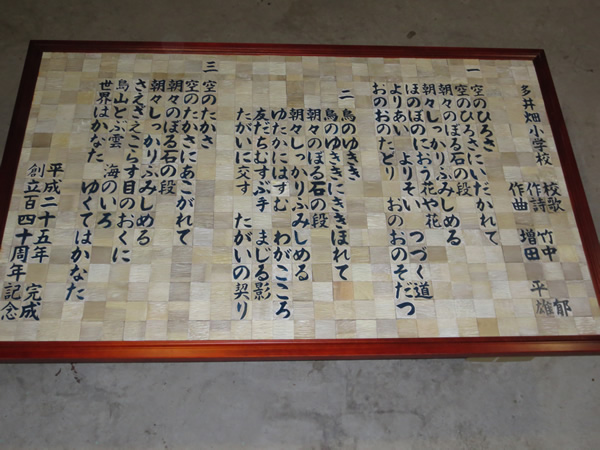 多井畑小学校 校歌
作詩 竹中 郁
作曲 増田 平雄
一
空のひろさ
空のひろさにいだかれて
朝々のぼる石の段
朝々しっかりふみしめる
ほのぼのにおう花や花
よりあい よりそい つづく道
おのおのたどり おのおのそだつ
二
鳥のゆきき
鳥のゆききにききほれて
朝々のぼる石の段
朝々しっかりふみしめる
ゆたかにはずむ わがこころ
友だちむすぶ手 まじる影
たがいに交す たがいの契り
三
空のたかさ
空のたかさにあこがれて
朝々のぼる石の段
朝々しっかりふみしめる
さえぎえこらす目のおくに
鳥山とぶ雲 海のいろ
世界はかなた ゆくてはかなた
平成二十五年 完成
創立百四十周年記念